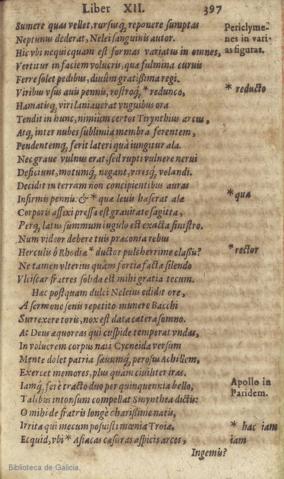 Liber XII. 397
Sumere quas vellet, rursusq, reponere sumptas Periclyme-
Neptunus dederat, Nelei sanguinis autor. nes in vari-
Hic vbi nequicquam est formas variatus in omnes, as figuras.
Vertitur in faciem volucris, quæ fulmina curuis
Ferre solet pedibus, diuûm gratissima regi.
Viribus vsus auis pennis, rostroq, * redunco, * reducto
Hamatisq, viri laniauerat vnguibus ora
Tendit in hunc, nimium certos Tirynthius arcus,
Atq, inter nubes sublimia membra ferentem,
Pendentemq, ferit lateri quà iungitur ala.
Nec graue vulnus erat, sed rupti vulnere nerui
Deficiunt, motumq, negant, viresq, volandi.
Decidit in terram non concipientibus auras
Infirmis pennis: & * qua leuis hæserat alæ * quæ
Corporis affixi pressa est grauitate sagitta,
Perq, latus summum iugulo est exacta sinistro.
Num videor debere tuis præconia rebus
Herculis ô Rhodiæ * ductor pulcherrime classis? * rector
Ne tamen vlterius quàm fortia facta silendo
Vlciscar fratres solida est mihi gratia tecum.
Hæc postquam dulci Neleius edidit ore,
A sermone senis repetito munere Bacchi
Surrexere toris, nox est data cætera somno.
At Deus æquoreas qui cuspide temperat vndas,
In volucrem corpus nati Cycneida versum
Mente dolet patria sæuumq, perosus Achillem,
Exercet memores, plus quàm ciuiliter iras.
Iamq, ferè tracto duo per quinquennia bello, Apollo in
Talibus intonsum compellat Smynthea dictis: Paridem.
O mihi de fratris longè charissime natis,
Irrita qui mecum posuisti mœnia Troiæ, * hac iam
Ecquid, vbi * Asiacas casuras aspicis arces, iam
Ingemis?
Biblioteca de Galicia